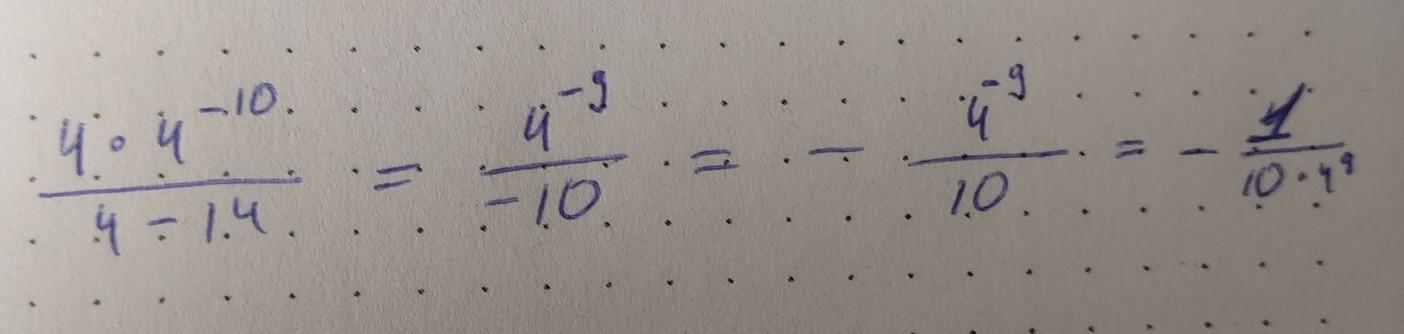 \frac{4 \cdot 4^{-10}}{4 - 14} = \frac{4^{-9}}{-10} = - \frac{4^{-9}}{10} = - \frac{1}{10 \cdot 4^{9}}